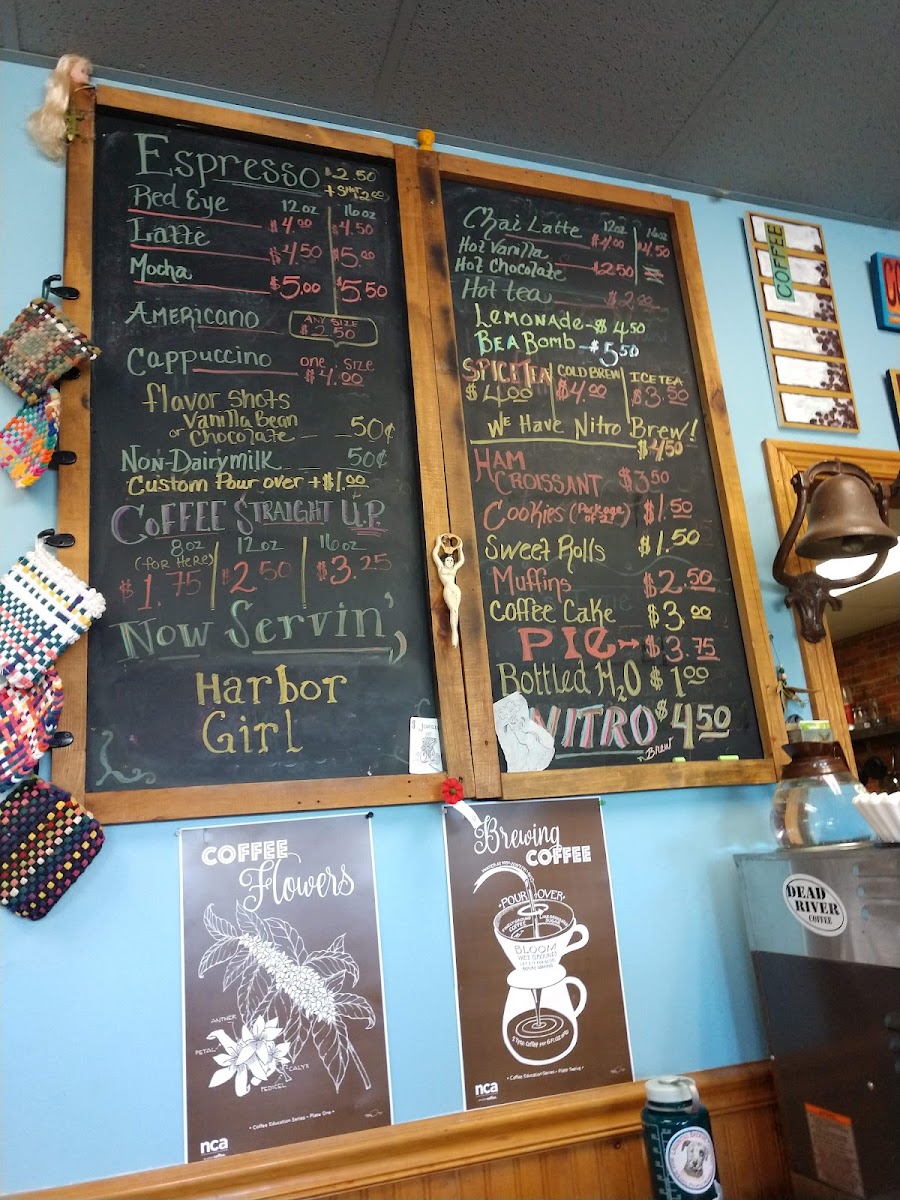 Espresso $2.50
+ Shot $2.00
12oz 16oz
Red Eye $4.00 $4.50
Latte $4.50 $5.00
Mocha $5.00 $5.50
Americano ANY SIZE $2.50
Cappuccino one size $4.00
flavor shots
Vanilla Bean
or Chocolate 50¢
Non-Dairy milk 50¢
Custom Pour over +$1.00
Coffee Straight U.P.
8oz 12oz 16oz
(for Here)
$1.75 $2.50 $3.25
Now Servin'
Harbor
Girl
12oz 16oz
Chai Latte $4.00 $4.50
Hot Vanilla
Hot Chocolate $2.50
Hot tea $2.00
Lemonade-$4.50
Bea Bomb-$5.50
SPICE TEA COLD BREW ICE TEA
$4.00 $4.00 $3.50
We Have Nitro Brew!
$4.50
HAM
CROISSANT $3.50
Cookies (Package of 2) $1.50
Sweet Rolls $1.50
Muffins $2.50
Coffee Cake $3.00
PIE $3.75
Bottled H2O $1.00
NITRO $4.50
Brew
COFFEE
COFFEE
Flowers
ANTHER
PETAL
CALYX
PEDICEL
• Coffee Education Series • Plate One •
nca
Brewing
COFFEE
•POUR OVER•
BLOOM
WET GROUNDS
• Coffee Education Series • Plate Twelve •
nca
DEAD
RIVER
COFFEE